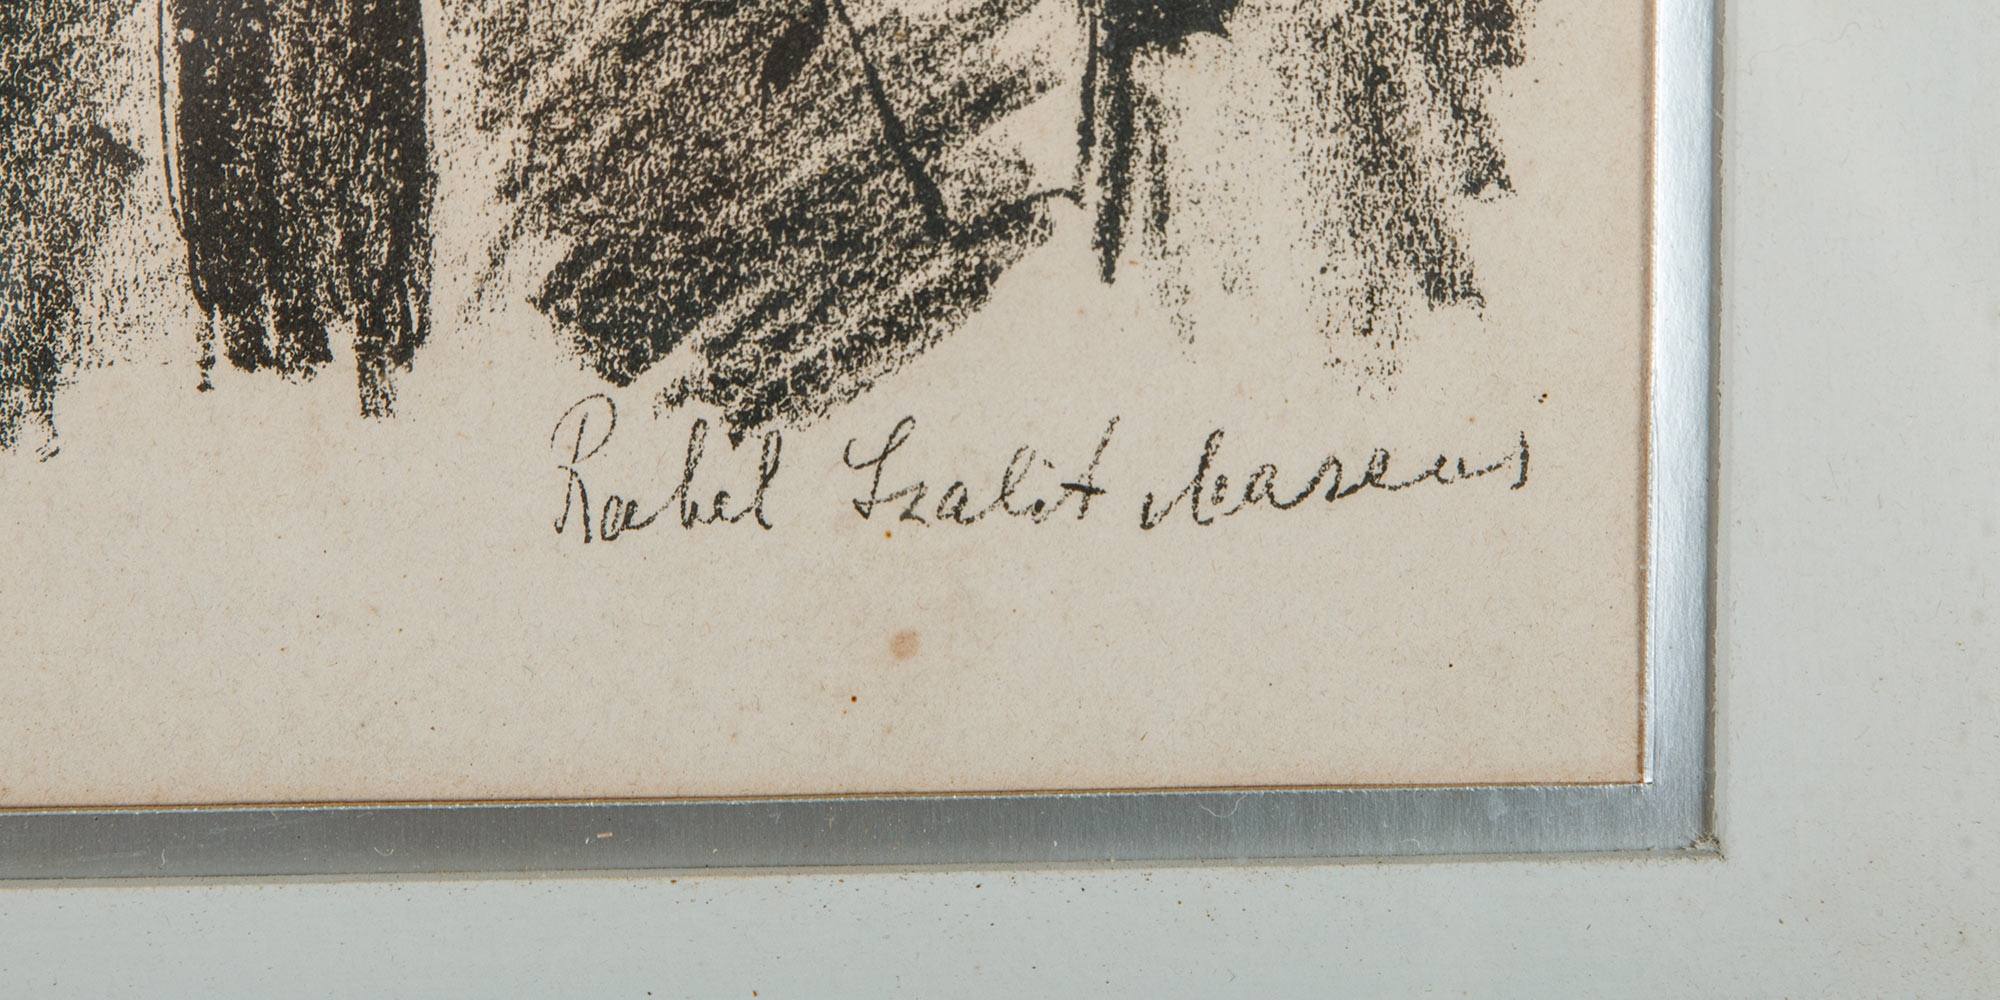 Rahel Szalit Marcus